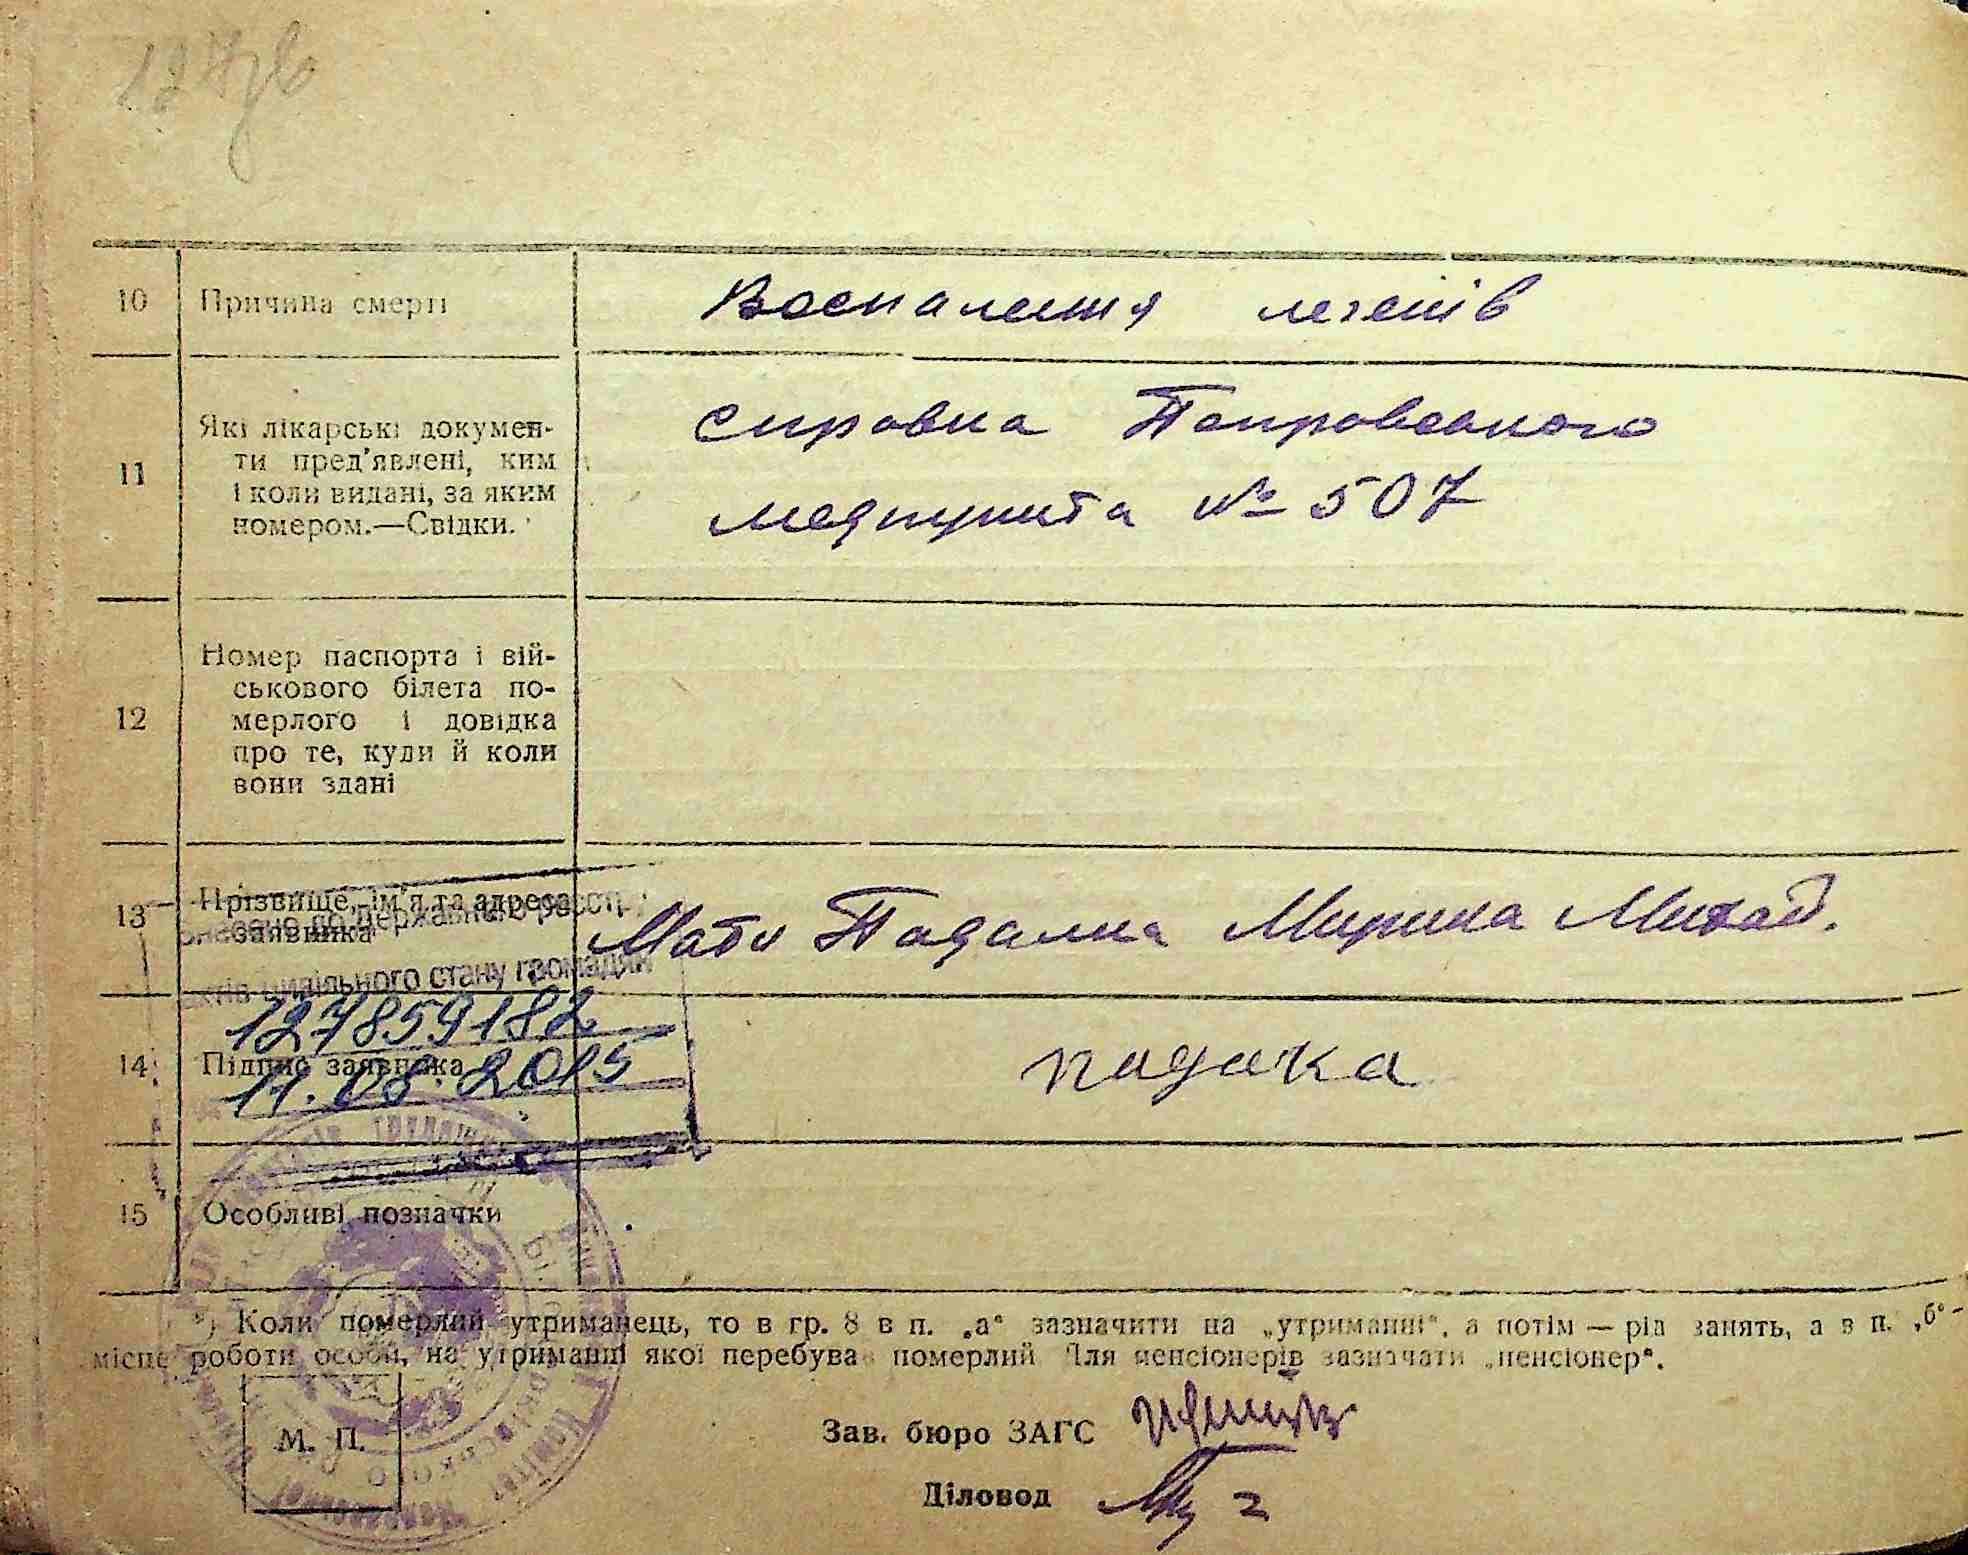 10 Причина смерті Воспалення легенів
11 Які лікарські докумен-
ти пред'явлені, ким
і коли видані, за яким
номером.—Свідки.
справка Покровського
медпункта № 507
12 Номер паспорта і вій-
ськового білета по-
мерлого і довідка
про те, куди й коли
вони здані
13 Прізвище, ім'я та адреса
заявника
Мати Падалка Мирина Михай.
державного реєстр
актів цивільного стану громадян
127859182
14 Підпис заявника
11.08.2015
15 Особливі позначки
*) Коли померлий утриманець, то в гр. 8 в п. „а“ зазначити на „утриманні“, а потім — рід занять, а в п. „б“ —
місце роботи особи, на утриманні якої перебував померлий Для пенсіонерів зазначати „пенсіонер“.
М. П.
Зав. бюро ЗАГС
Діловод